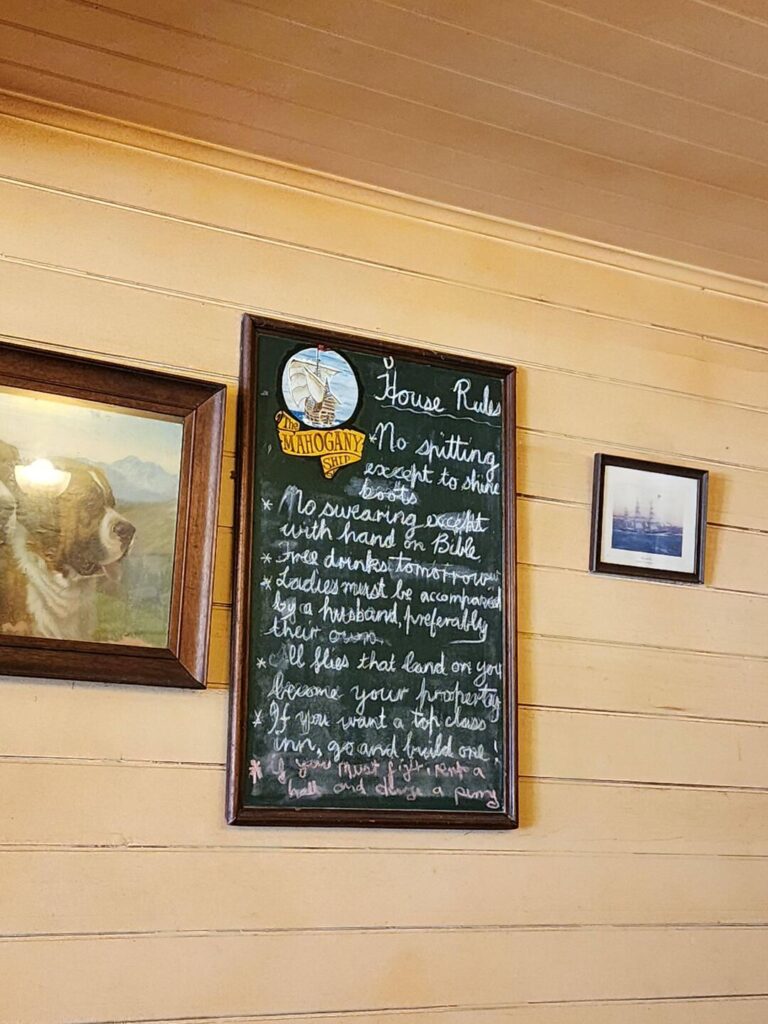 The
MAHOGANY
SHIP
House Rules
*No spitting
except to shine
boots
* No swearing except
with hand on Bible
* Free drinks tomorrow
* Ladies must be accompanied
by a husband, preferably
their own
* All flies that land on you
become your property
* If you want a top class
inn, go and build one!
* If you must fight, rent a
hall and charge a penny